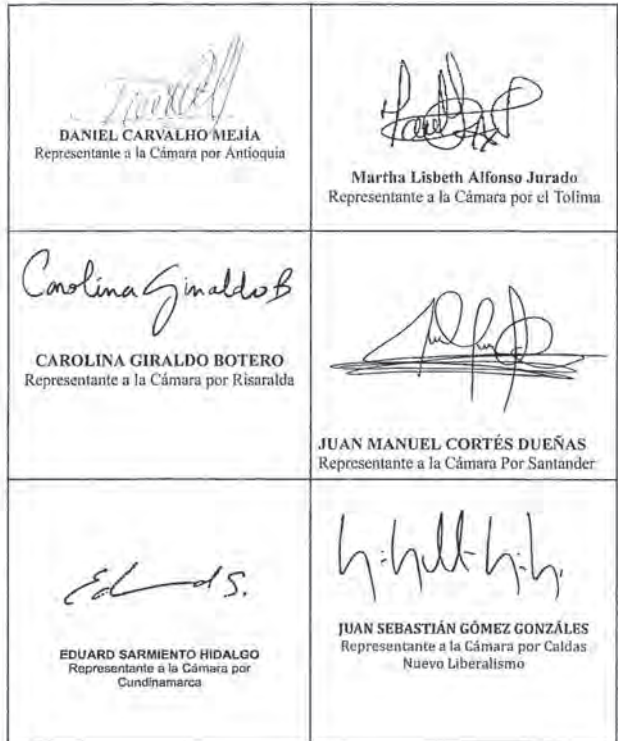 DANIEL CARVALHO MEJÍA
Representante a la Cámara por Antioquia
Martha Lisbeth Alfonso Jurado
Representante a la Cámara por el Tolima
Carolina Giraldo B
CAROLINA GIRALDO BOTERO
Representante a la Cámara por Risaralda
JUAN MANUEL CORTÉS DUEÑAS
Representante a la Cámara Por Santander
EDUARD SARMIENTO HIDALGO
Representante a la Cámara por
Cundinamarca
JUAN SEBASTIÁN GÓMEZ GONZÁLES
Representante a la Cámara por Caldas
Nuevo Liberalismo